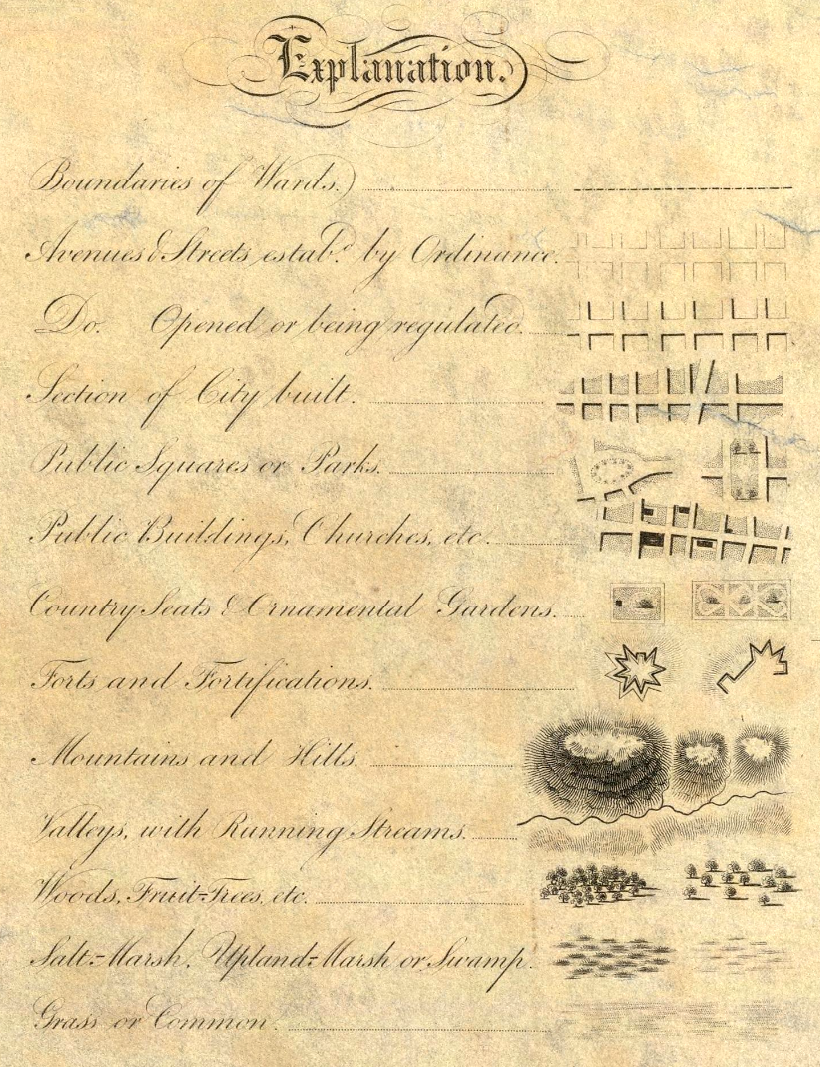 Explanation.
Boundaries of Wards.
Avenues & Streets estab.d by Ordinance.
Do. Opened or being regulated.
Section of City built.
Public Squares or Parks.
Public Buildings, Churches, etc.
Country Seats & Ornamental Gardens.
Forts and Fortifications.
Mountains and Hills
Valleys, with Running Streams.
Woods, Fruit-Trees, etc.
Salt-Marsh, Upland-Marsh or Swamp.
Grass or Common.